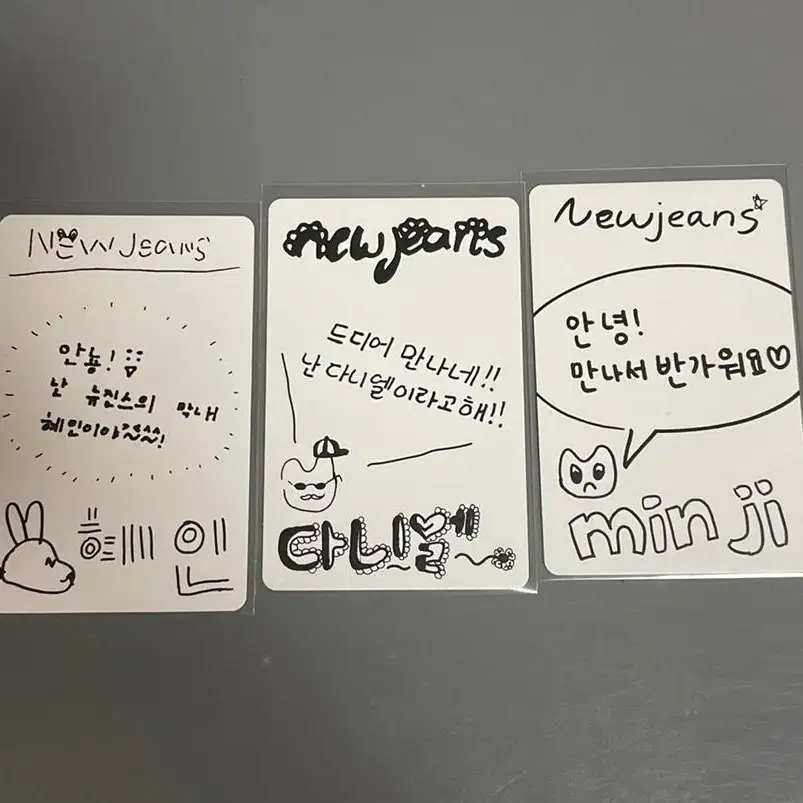 NEW JEANS
안뇽! ::
난 뉴진스의 막내
혜인이야
혜인
newjeans
드디어 만나네!!
난 다니엘이라고해!!
다니엘
Newjeans
안녕!
만나서 반가워요♡
min ji